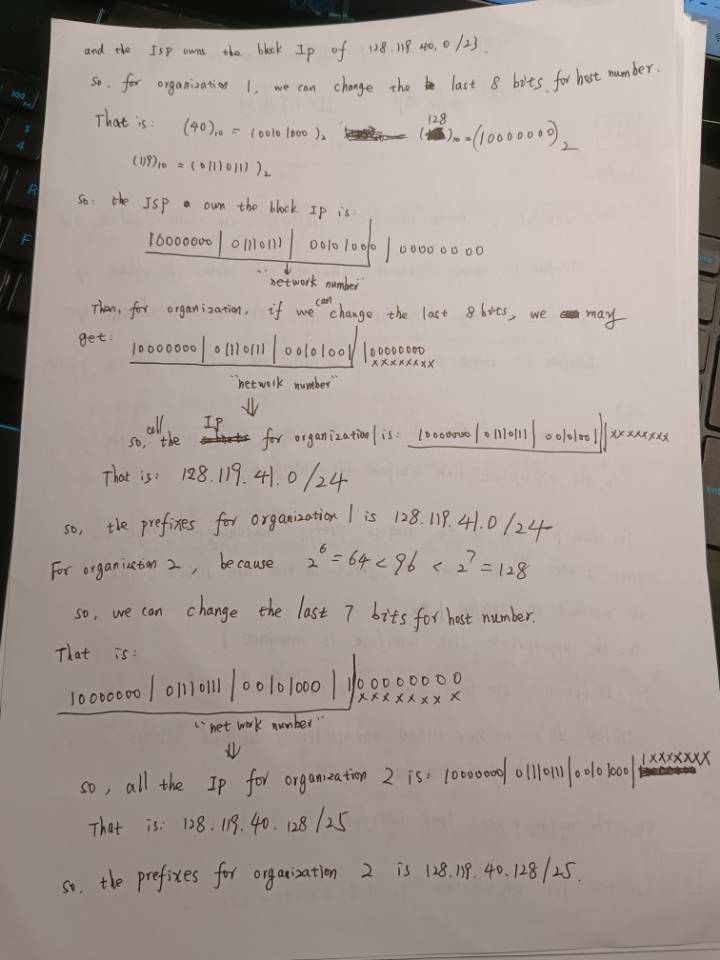 and the Isp owns the block Ip of 128.119.40.0/23.
So, for organization 1, we can change the last 8 bits for host number.
That is: (40)10 = (00101000)2 (128)10 = (10000000)2
(119)10 = (01110111)2
So, the ISP own the block Ip is:
10000000 | 01110111 | 00101000 | 00000000
"network number"
Then, for organization, if we can change the last 8 bits, we may
get: 10000000 | 01110111 | 00101001 | 00000000
xxxxxxxx
"network number"
⇓
so, all the Ip for organization 1 is: 10000000 | 01110111 | 00101001 | xxxxxxxx
That is: 128.119.41.0/24
so, the prefixes for organization 1 is 128.119.41.0/24
For organization 2, because 2^6 = 64 < 96 < 2^7 = 128
so, we can change the last 7 bits for host number.
That is:
10000000 | 01110111 | 00101000 | 10000000
xxxxxxx
"network number"
⇓
so, all the Ip for organization 2 is: 10000000 | 01110111 | 00101000 | 1xxxxxxx
That is: 128.119.40.128/25
so, the prefixes for organization 2 is 128.119.40.128/25.